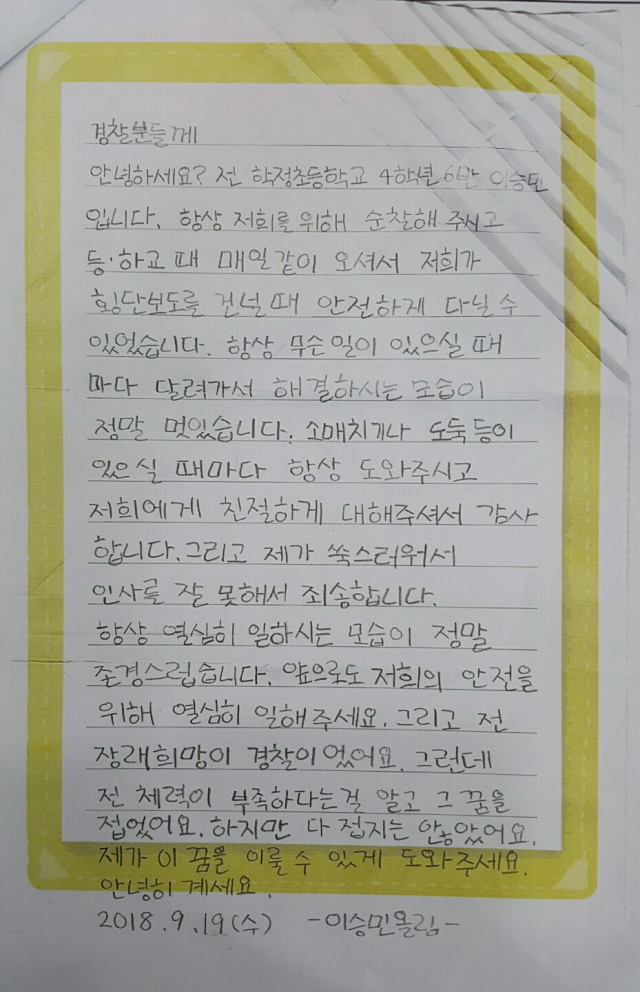 경찰분들께
안녕하세요? 전 학정초등학교 4학년 6반 이승민
입니다. 항상 저희를 위해 순찰해 주시고
등·하교 때 매일같이 오셔서 저희가
횡단보도를 건널 때 안전하게 다닐 수
있었습니다. 항상 무슨 일이 있으실 때
마다 달려가서 해결하시는 모습이
정말 멋있습니다. 소매치기나 도둑 등이
있으실 때마다 항상 도와주시고
저희에게 친절하게 대해주셔서 감사
합니다. 그리고 제가 쑥스러워서
인사를 잘 못해서 죄송합니다.
항상 열심히 일하시는 모습이 정말
존경스럽습니다. 앞으로도 저희의 안전을
위해 열심히 일해 주세요. 그리고 전
장래희망이 경찰이었어요. 그런데
전 체력이 부족하다는걸 알고 그 꿈을
접었어요. 하지만 다 접지는 않았어요.
제가 이 꿈을 이룰 수 있게 도와주세요.
안녕히 계세요.
2018.9.19(수) -이승민올림-